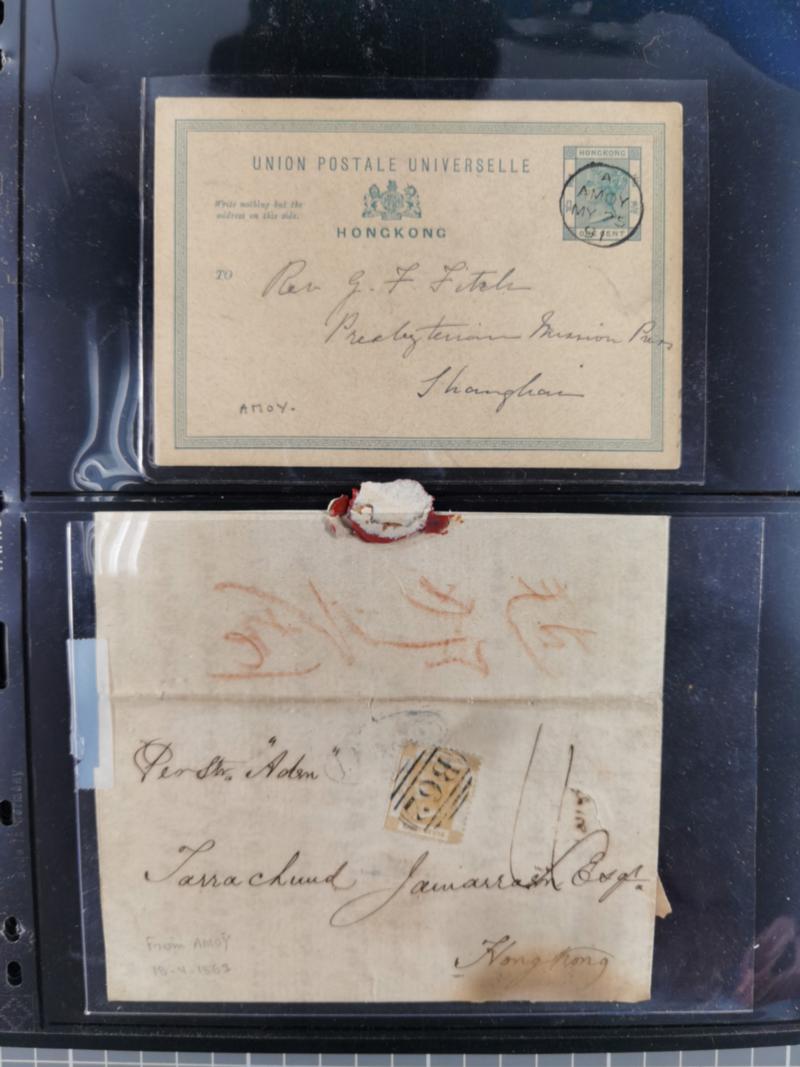 UNION POSTALE UNIVERSELLE
HONGKONG
Write nothing but the
address on this side.
HONGKONG
ONE CENT
A
AMOY
MY 25
91
TO
Rev G. F. Fitch
Presbyterian Mission Press
Shanghai
AMOY.
Per Str. "Aden"
B62
Tarrachund Esqr.
Hongkong
From AMOY